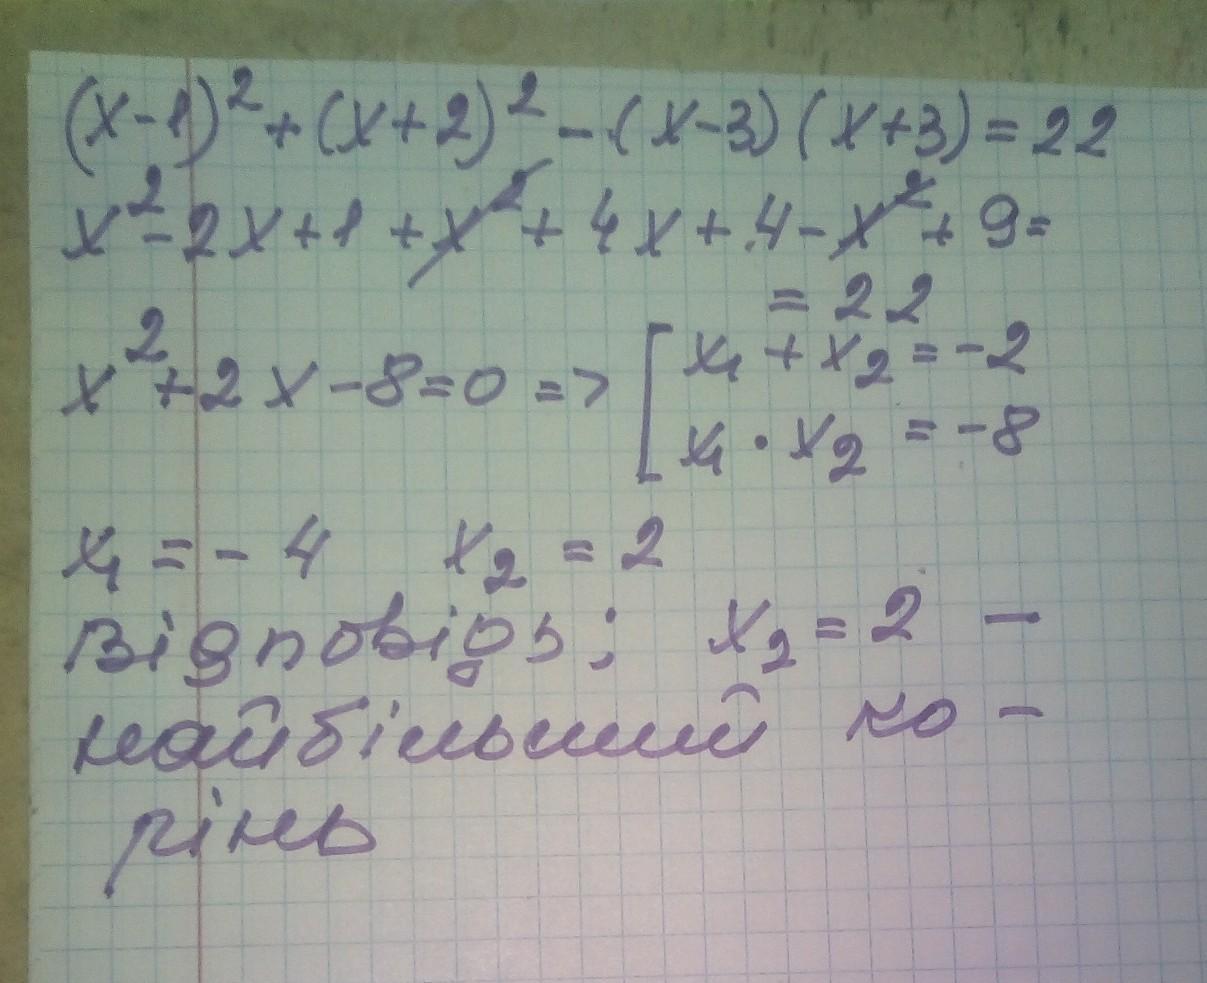 (x-1)² + (x+2)² - (x-3)(x+3) = 22
x² - 2x + 1 + x² + 4x + 4 - x² + 9 =
= 22
x² + 2x - 8 = 0 => [ x₁ + x₂ = -2
x₁ · x₂ = -8
x₁ = -4 x₂ = 2
Відповідь: x₂ = 2 -
найбільший ко -
рінь